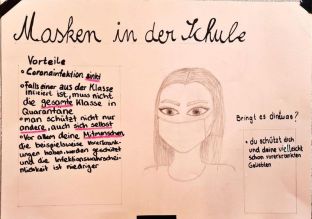 Masken in der Schule
Vorteile
• Coronainfektion sinkt
• Falls einer aus der Klasse
infiziert ist, muss nicht
die gesamte Klasse in
Quarantäne
• man schützt nicht nur
andere, auch sich selbst
• Vor allem deine Mitmenschen,
die beispielsweise Vorerkran-
kungen haben, werden geschützt
und die Infektionswahrschein-
lichkeit ist niedriger
Bringt es dir was?
• du schützt dich
und deine vielleicht
schon vorerkrankten
Geliebten